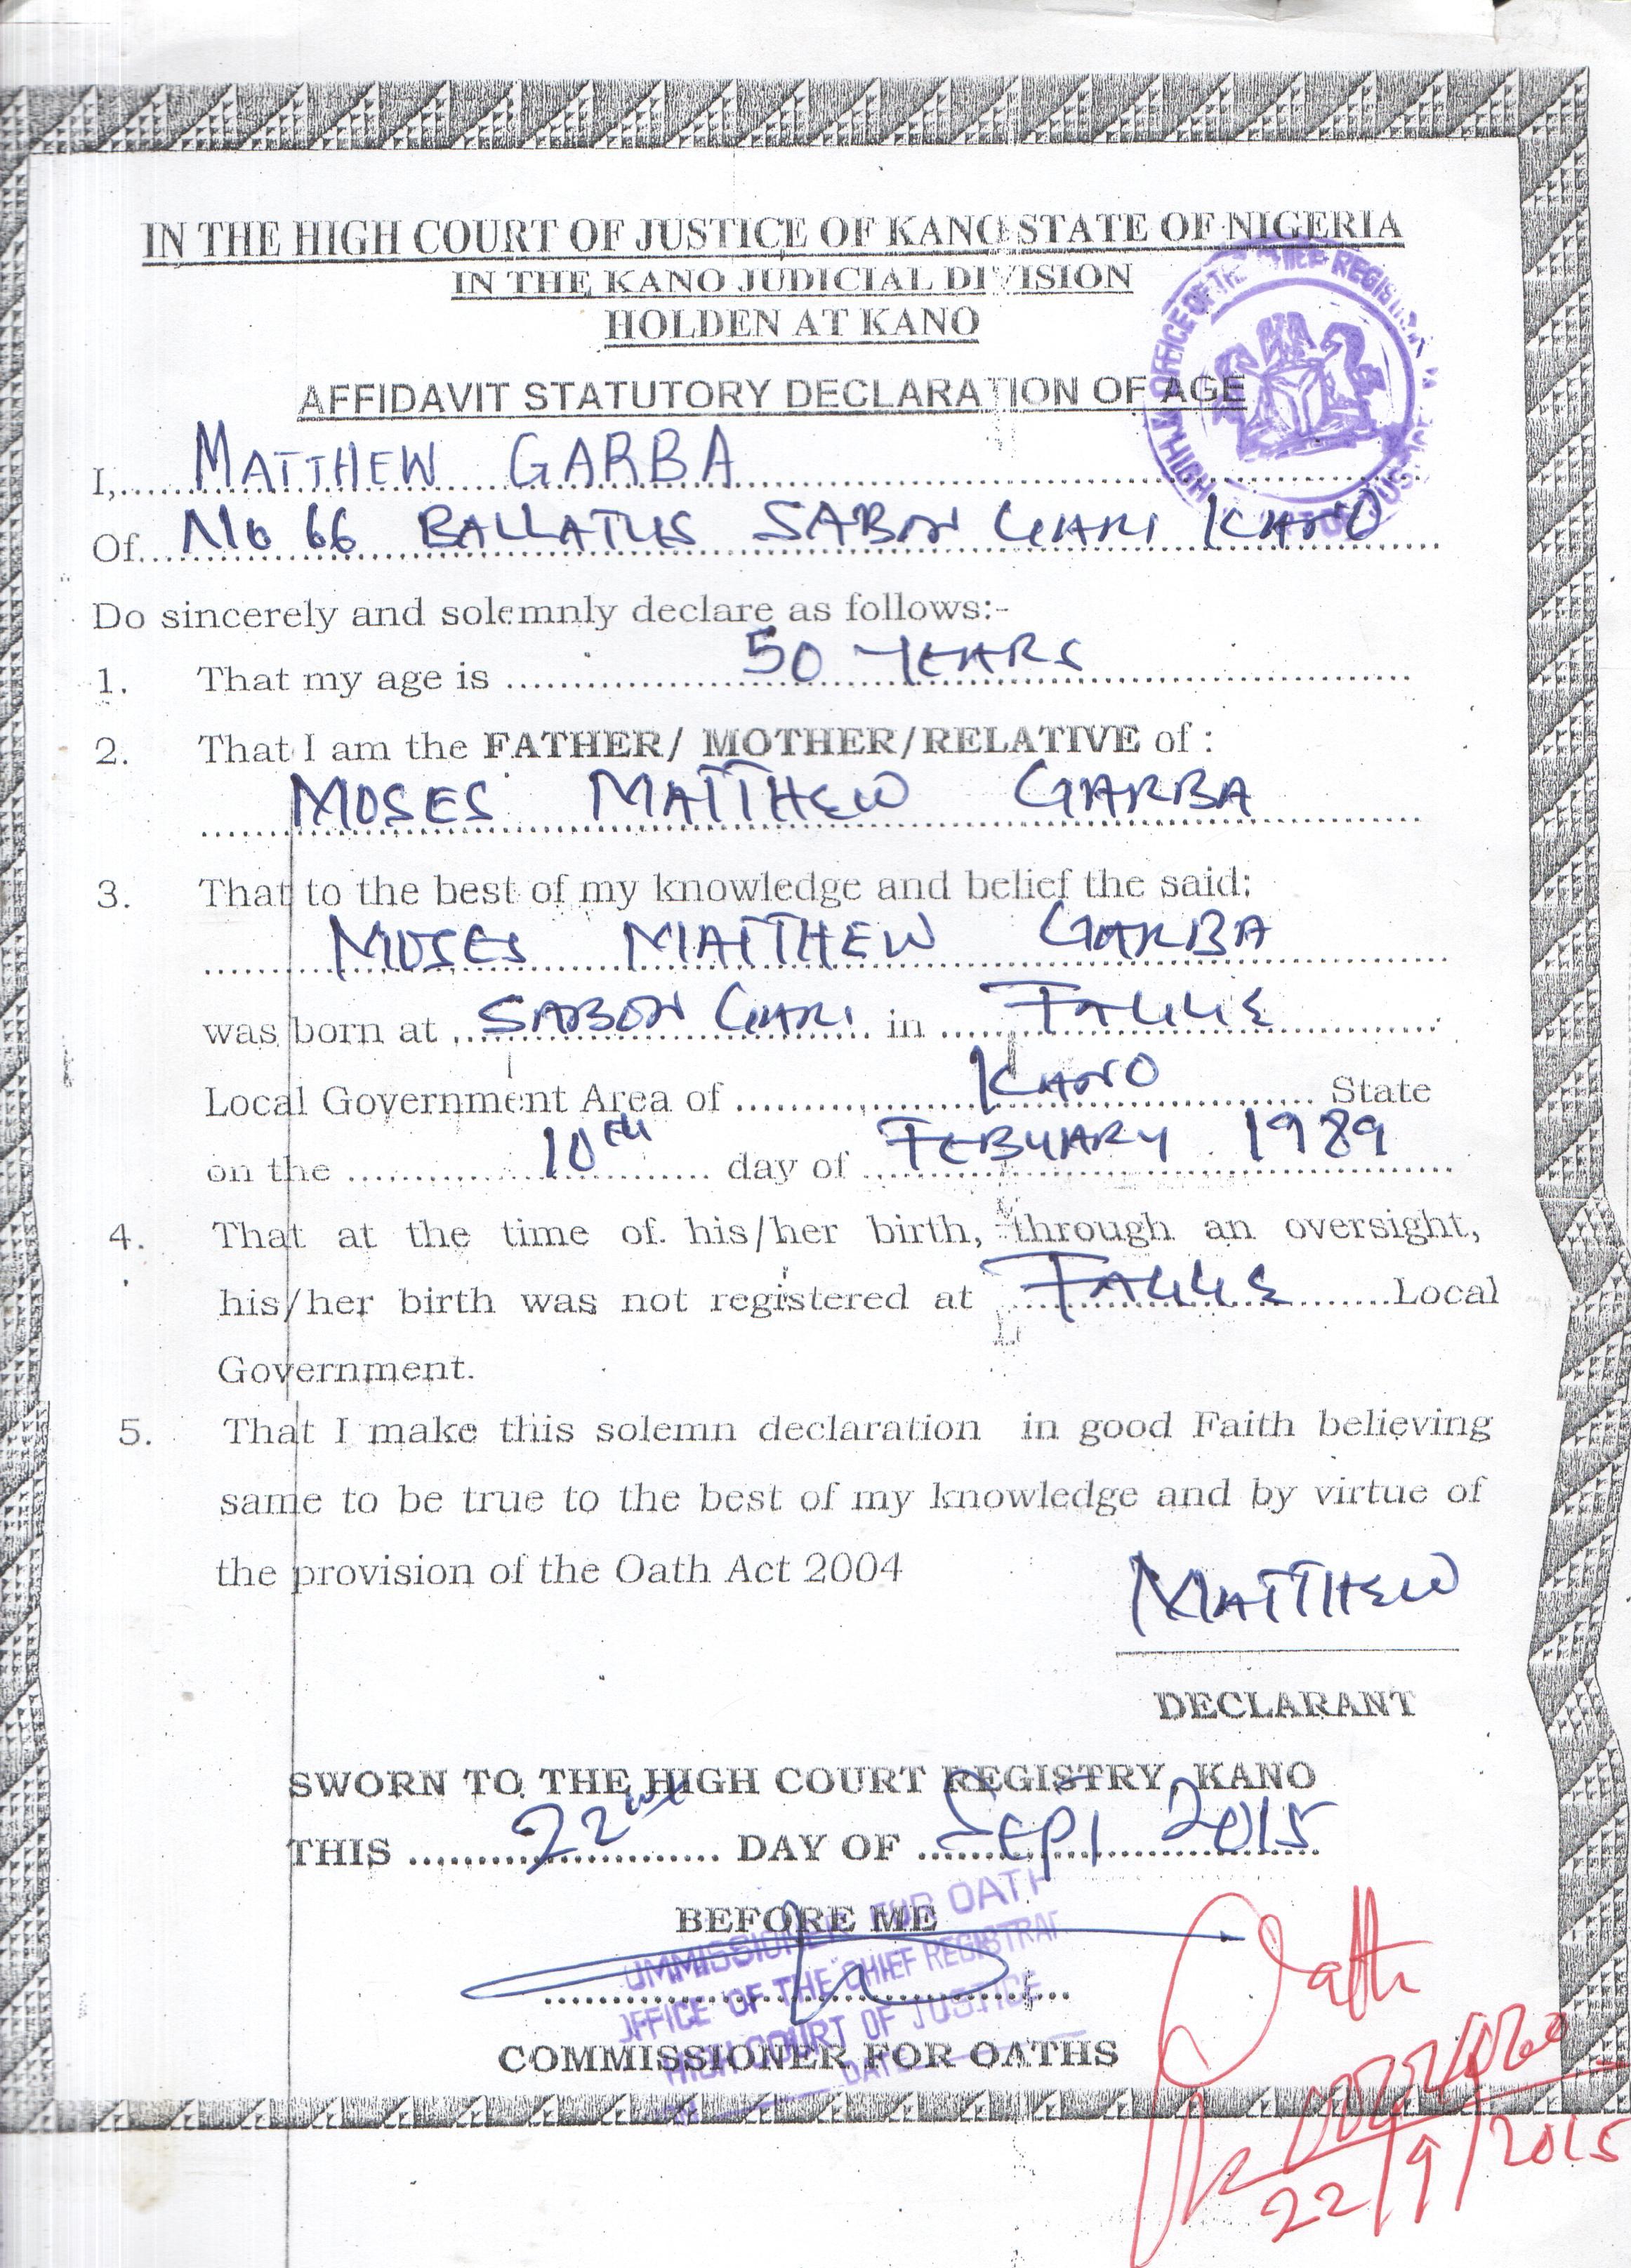 IN THE HIGH COURT OF JUSTICE OF KANO STATE OF NIGERIA
IN THE KANO JUDICIAL DIVISION
HOLDEN AT KANO
AFFIDAVIT STATUTORY DECLARATION OF AGE
I, MATTHEW GARBA
Of No 66 SABON GARI KANO
Do sincerely and solemnly declare as follows:-
1. That my age is 50 YEARS
2. That I am the FATHER/ MOTHER/RELATIVE of :
MOSES MATTHEW GARBA
3. That to the best of my knowledge and belief the said:
MOSES MATTHEW GARBA
was born at SABON GARI in FAGGE
Local Government Area of KANO State
on the 10TH day of FEBUARY 1989
4. That at the time of his/her birth, through an oversight,
his/her birth was not registered at FAGGE Local
Government.
5. That I make this solemn declaration in good Faith believing
same to be true to the best of my knowledge and by virtue of
the provision of the Oath Act 2004
MATTHEW
DECLARANT
SWORN TO THE HIGH COURT REGISTRY, KANO
THIS 22nd DAY OF SEPT 2015
BEFORE ME
COMMISSIONER FOR OATHS
OFFICE OF THE CHIEF REGISTRAR
HIGH COURT OF JUSTICE
DATE
Oath
22/9/2015